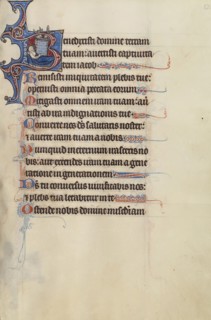 Benedixisti domine terram
tuam: auertisti captiuita
tem iacob.
Remisisti iniquitatem plebis tue:
operuisti omnia peccata eorum
Mitigasti omnem iram tuam: au
tisti ab ira indignationis tue
Conuerte nos ds salutaris noster:
et auerte iram tuam a nobis
Nunquid in eternum irasceris no
bis: aut extendes iram tuam a gene
ratione in generationem
Ds tu conuersus uiuificabis nos:
et plebs tua letabitur in te
Ostende nobis domine misericordiam